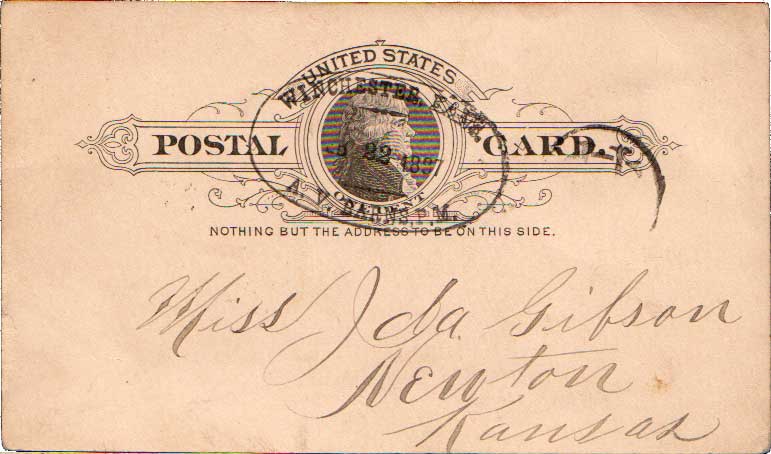 UNITED STATES
WINCHESTER, KANS.
POSTAL CARD.
22 1887
ONE CENT
A. V. BARNES, P.M.
NOTHING BUT THE ADDRESS TO BE ON THIS SIDE.
Miss Ida Gibson
Newton
Kansas